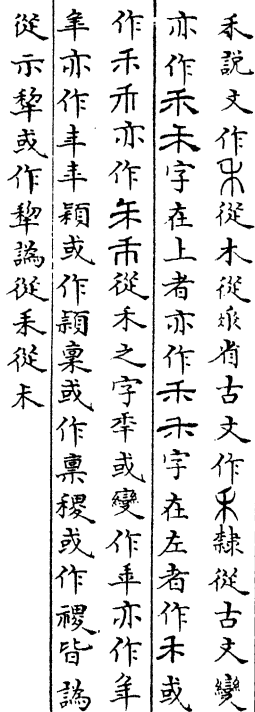 禾說文作𥝌從木從𠂹省古文作禾隸從古文變
亦作禾禾字在上者亦作禾禾字在左者作禾或
作禾木亦作朱市從禾之字秊或變作年亦作𠦜
年亦作丰丰穎或作頴稟或作禀稷或作禝皆譌
從示犂或作犁譌從禾從木